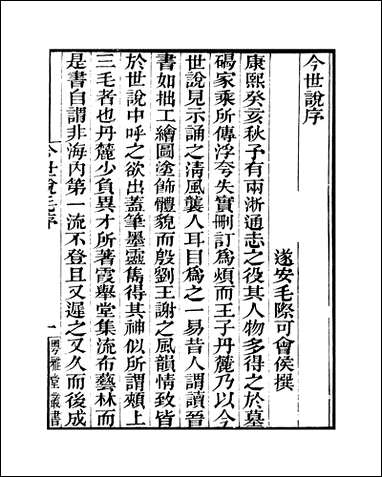 今世說序
遂安毛際可會侯撰
康熙癸亥秋予有兩浙通志之役其人物多得之於墓
碣家乘所傳浮夸失實刪訂為煩而王子丹麓乃以今
世說見示誦之清風襲人耳目為之一易昔人謂讀晉
書如拙工繪圖塗飾體貌而殷劉王謝之風韻情致皆
於世說中呼之欲出蓋筆墨靈雋得其神似所謂頰上
三毛者也丹麓少負異才所著霞舉堂集流布藝林而
是書自謂非海內第一流不登且又遲之又久而後成
今世說毛序
一
粵雅堂叢書